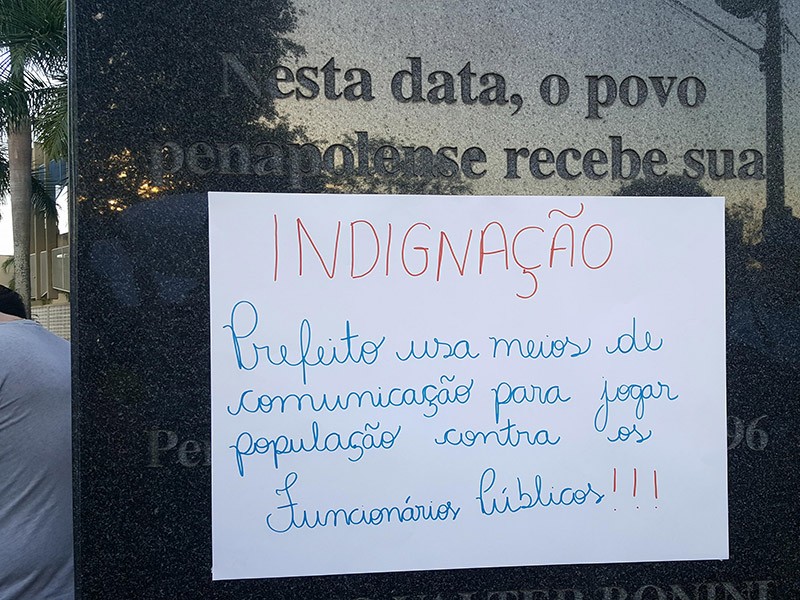 Nesta data, o povo
penapolense recebe sua
INDIGNAÇÃO
Prefeito usa meios de
comunicação para jogar
população contra os
Funcionários Públicos!!!
96
VALTER RONINI